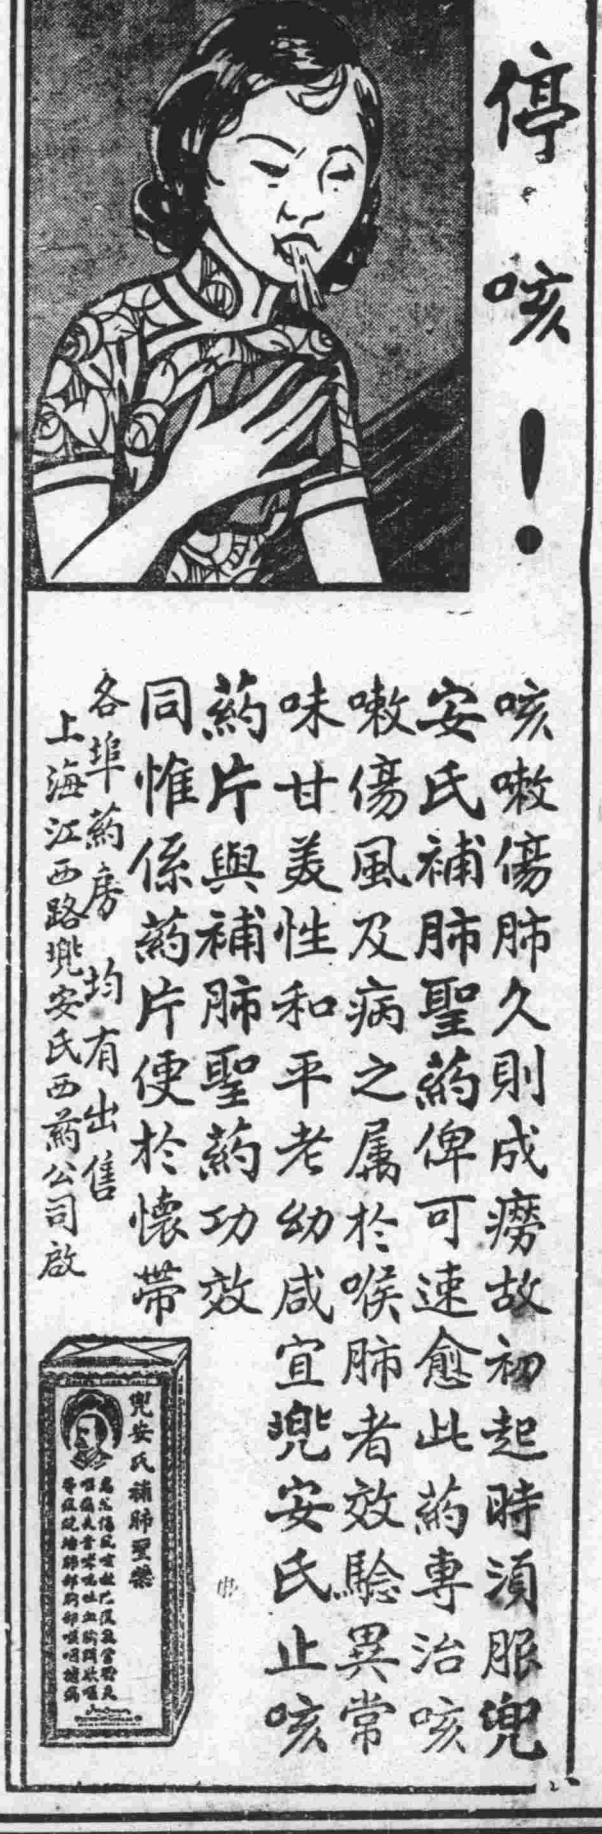 停咳！
咳嗽傷肺久則成癆故初起時須服兜
安氏補肺聖藥俾可速愈此藥專治咳
嗽傷風及病之属於喉肺者效驗異常
味甘美性和平老幼咸宜兜安氏止咳
藥片與補肺聖藥功效
同惟係藥片便於懷帶
各埠藥房均有出售
上海江西路兜安氏西藥公司啟
兜安氏補肺聖藥